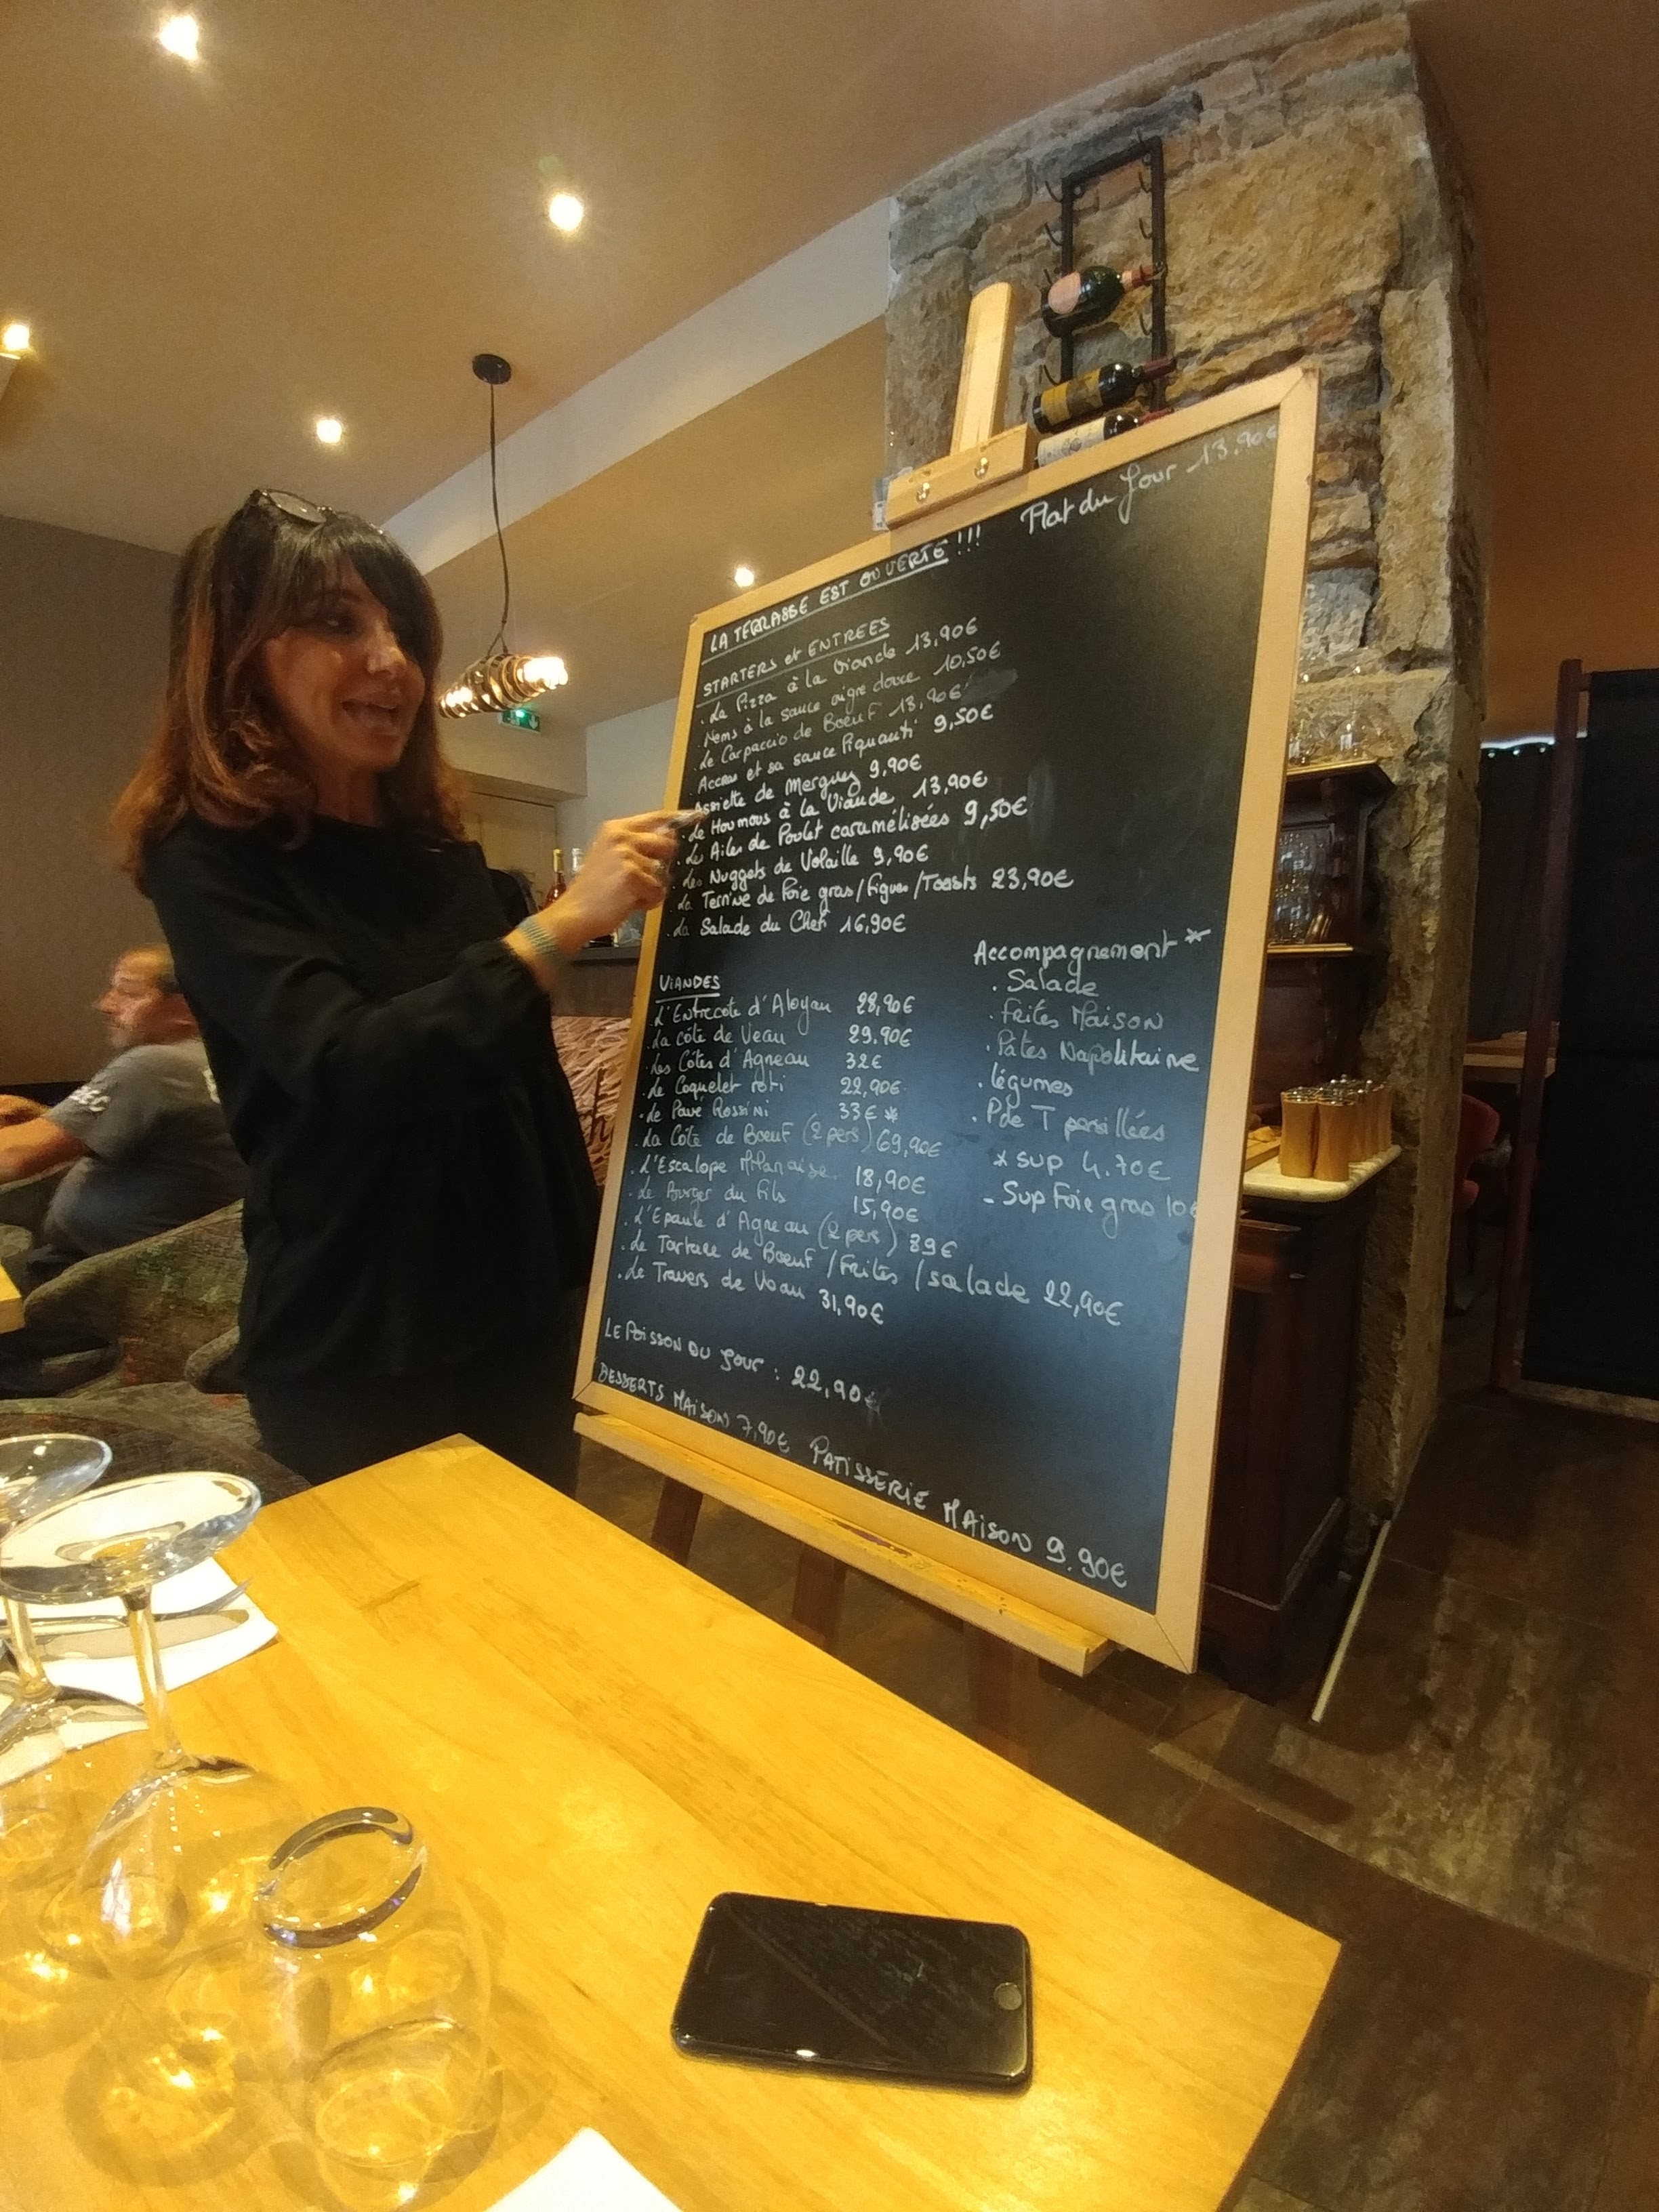 Plat du Jour 13.90€
LA TERRASSE EST OUVERTE !!!
STARTERS et ENTREES
. La Pizza à la Viande 13,90€
. Nems à la sauce aigre douce 10,50€
. Le Carpaccio de Boeuf 13,90€
. Accras et sa sauce Piquanti 9,50€
. Assiette de Merguez 9,90€
. Le Houmous à la Viande 13,90€
. Les Ailes de Poulet caramélisées 9,50€
. Les Nuggets de Volaille 9,90€
. La Terrine de Foie gras/Figues/Toasts 23,90€
. La Salade du Chef 16,90€
VIANDES
. L'Entrecote d'Aloyau 28,90€
. La côte de Veau 29.90€
. Les Côtes d'Agneau 32€
. Le Coquelet roti 22,90€
. Le Pavé Rossini 33€ *
. La Côte de Boeuf (2 pers) 69,90€
. L'Escalope Milanaise 18,90€
. Le Burger du Fils 15,90€
. L'Epaule d'Agneau (2 pers) 89€
. Le Tartare de Boeuf / Frites / salade 22,90€
. Le Travers de Veau 31,90€
Accompagnement *
. Salade
. Frites Maison
. Pâtes Napolitaine
. légumes
. P de T persillées
* sup 4.70€
- Sup Foie gras 10€
LE POISSON DU Jour : 22,90€
DESSERTS MAISON 7,90€ PATISSERIE MAISON 9.90€